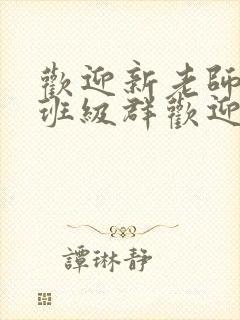 歡迎新老師
班級群歡迎
譚琳靜